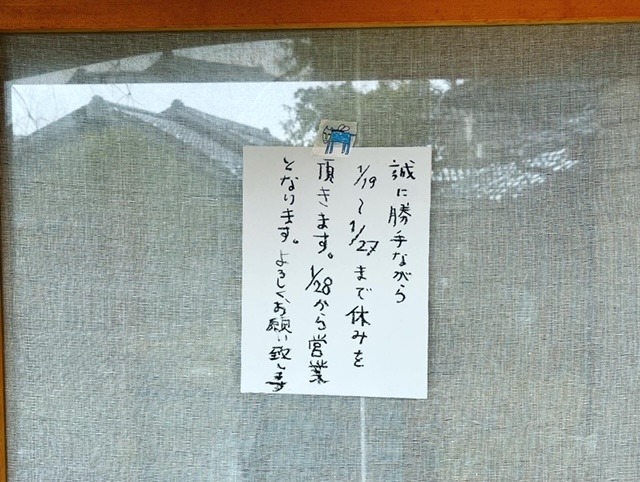 誠に勝手ながら
1/19〜1/27まで休みを
頂きます。1/28から営業
となります。よろしくお願い致します